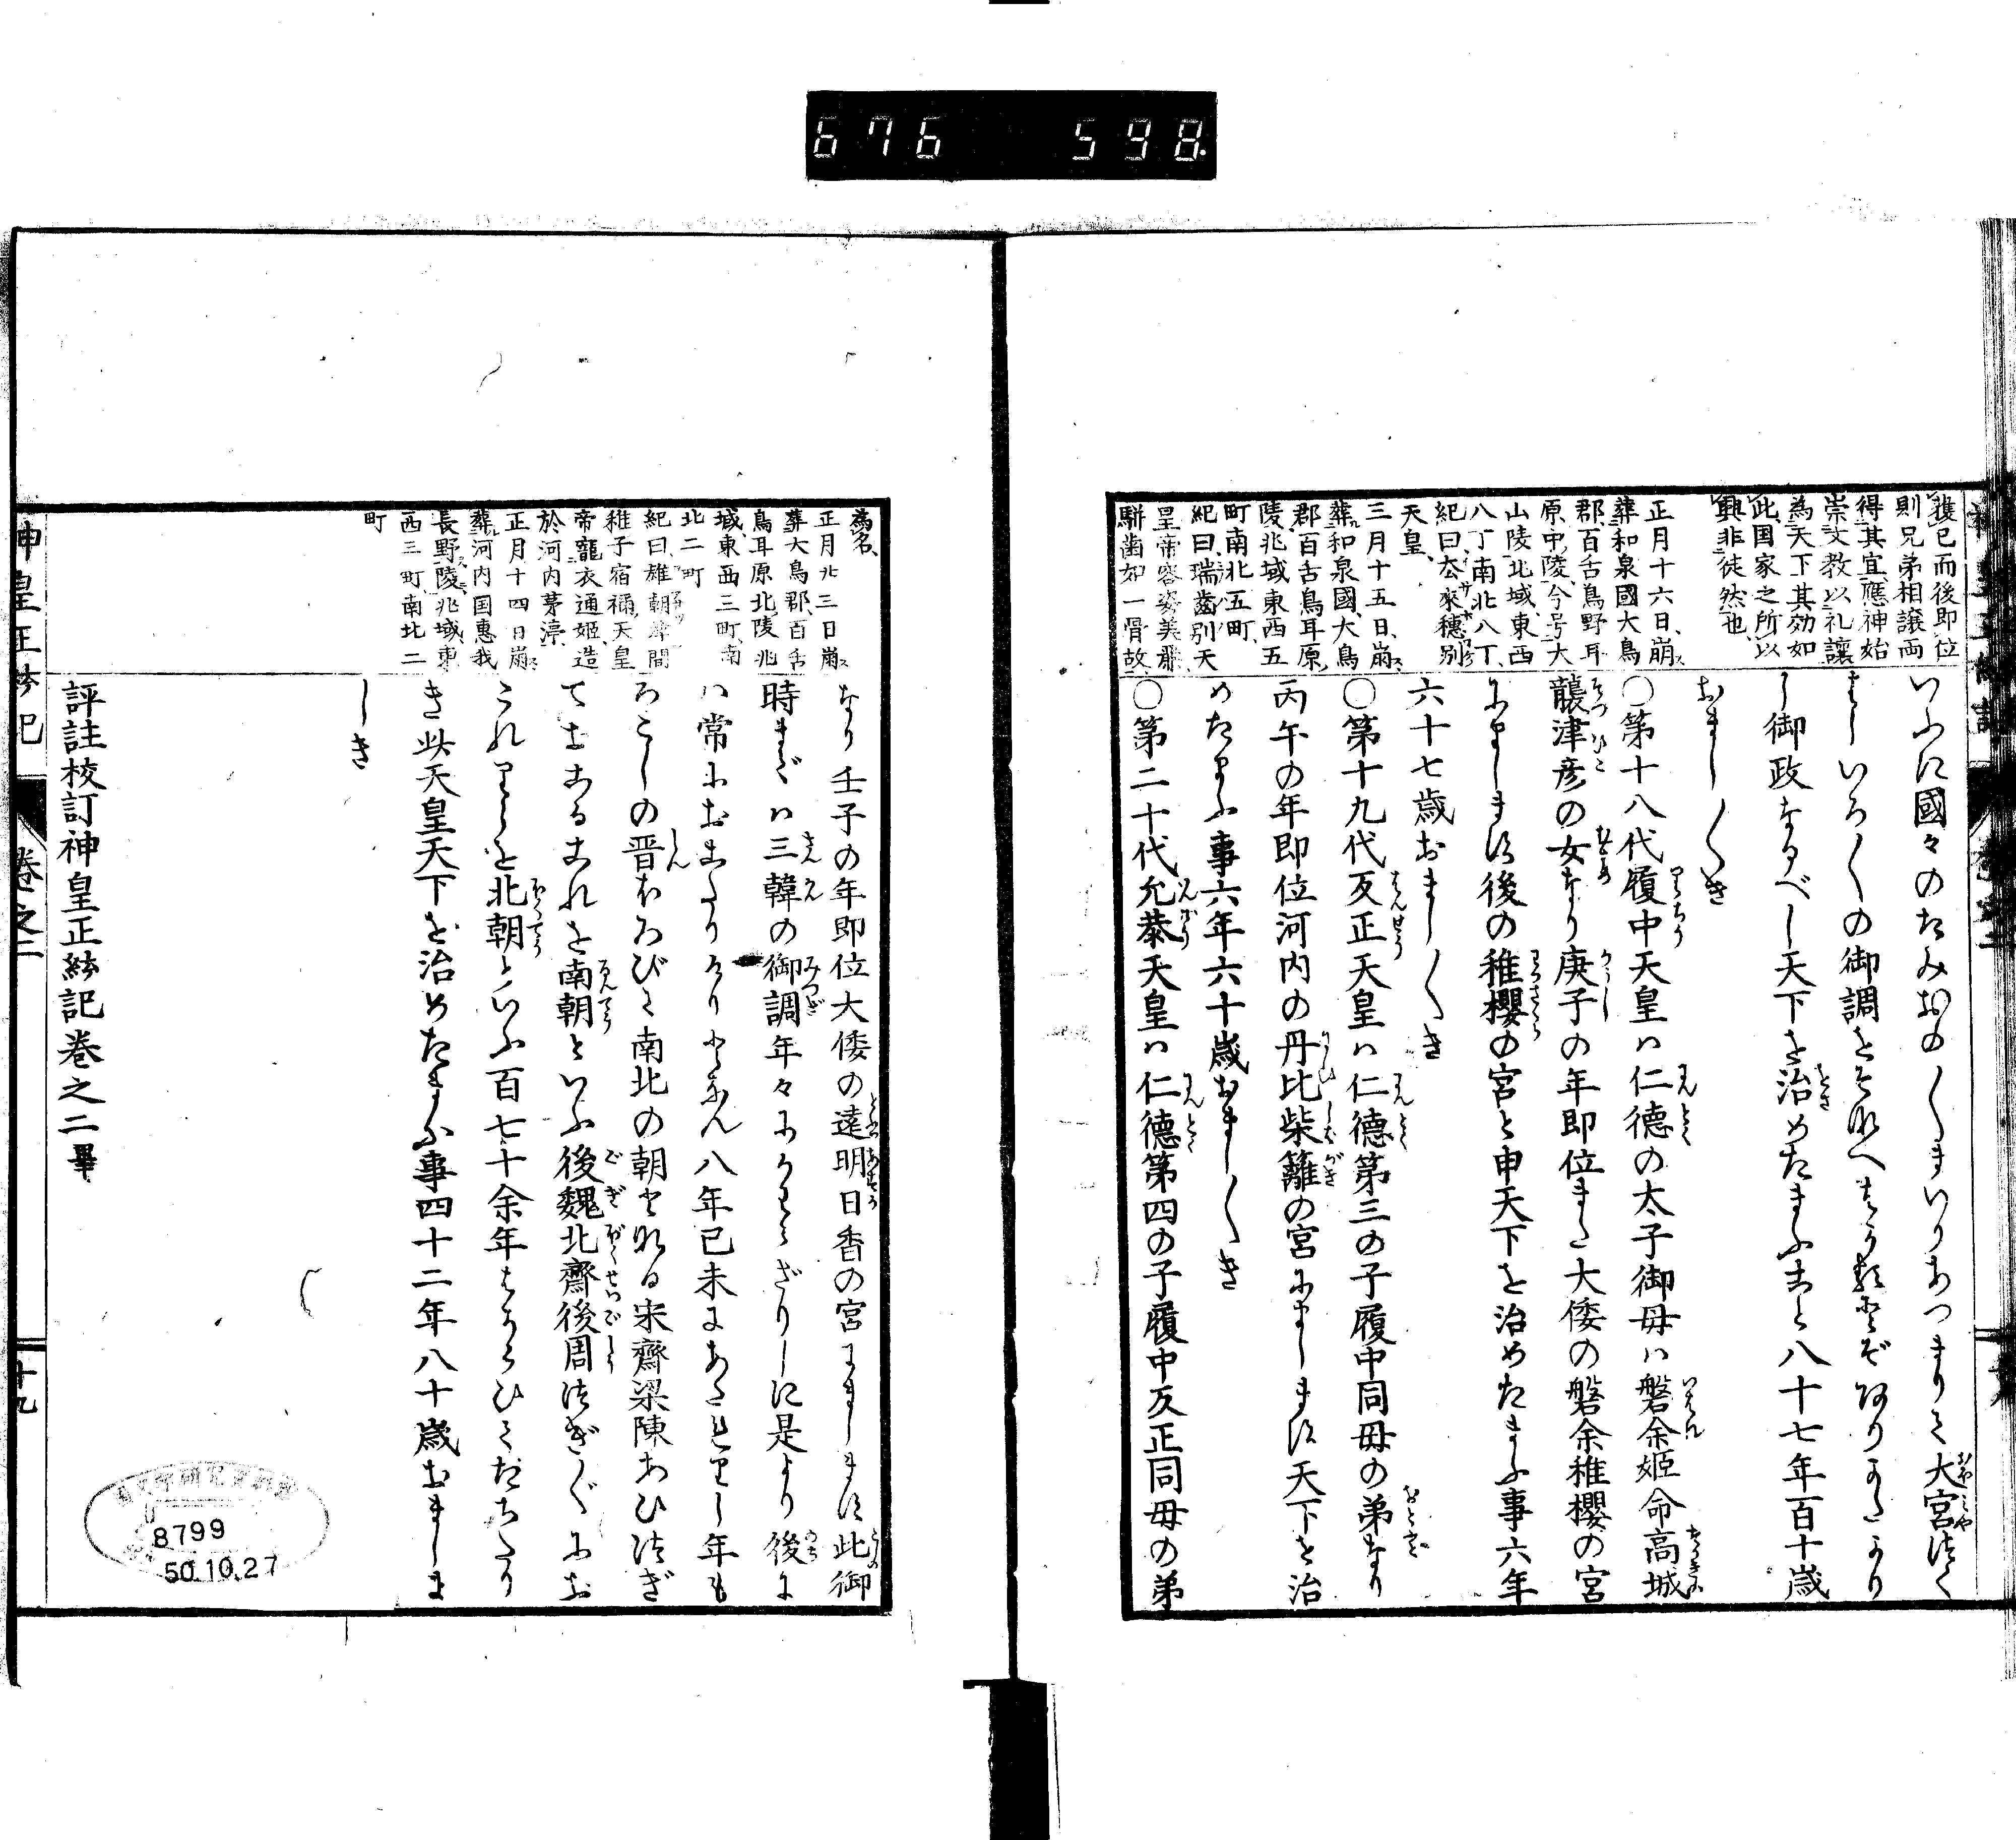 676 598
獲已而後即位
則兄弟相譲両
得其宜應神始
崇文教以礼讓
為天下其効如
此国家之所以
興非徒然也
正月十六日崩ス
葬和泉國大鳥
郡百舌鳥野耳
原中陵今号大
山陵北域東西
八丁南北八丁
紀曰去來穂別
天皇
三月十五日崩ス
葬和泉國大鳥
郡百舌鳥耳原
陵兆域東西五
町南北五町
紀曰瑞齒別天
皇帝容姿美麗
駢齒如一骨故
いふに國々のたみおの〱まいりあつまりて大宮つく
りしいろ〱の御調をそなへけり
し御政なるべし天下を治めたまふこと八十七年百十歳
おまし〱き
〇第十八代履中天皇ハ仁德の太子御母ハ磐余姫命高城
襲津彦の女なり庚子の年即位また大倭の磐余稚櫻の宮
にまします後の稚櫻の宮と申天下を治めたまふ事六年
六十七歳おまし〱き
〇第十九代反正天皇ハ仁德第三の子履中同母の弟なり
丙午の年即位河内の丹比柴籬の宮にまします天下を治
めたまふ事六年六十歳おまし〱き
〇第二十代允恭天皇ハ仁德第四の子履中反正同母の弟
為名
正月廿三日崩ス
葬大鳥郡百舌
鳥耳原北陵兆
域東西三町南
北二町
紀曰雄朝津間
稚子宿禰天皇
帝寵衣通姫造
於河内茅渟
正月十四日崩ス
葬河内国惠我
長野陵兆域東
西三町南北二
町
なり壬子の年即位大倭の遠明日香の宮にまします此御
時までハ三韓の御調年々にかはらざりしに是より後に
ハ常におこたりけりとなん八年己未にあたれりし年も
ろこしの晋ほろびて南北の朝となる宋齊梁陳あひつぎ
ておこるこれを南朝といふ後魏北齊後周つぎ〱にお
これりしを北朝といふ百七十余年はならひてたちたり
き此天皇天下を治めたまふ事四十二年八十歳おましま
しき
評註校訂神皇正統記巻之二畢
神皇正統記
巻之二
十九
8799
50.10.27